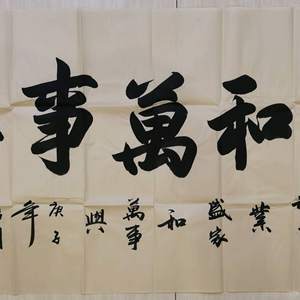 和萬事
業盛家和萬事興庚子年